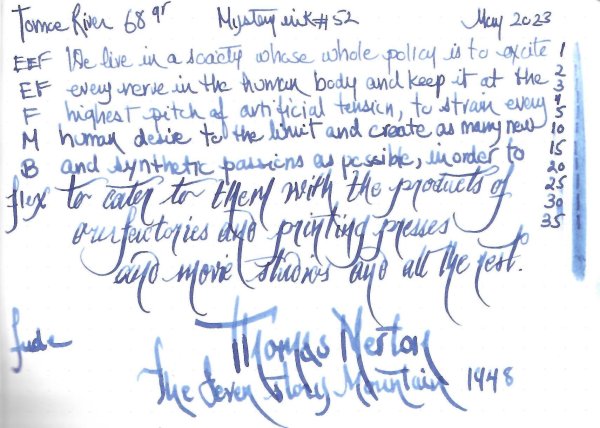 Tomoe River 68 gr Mystery ink # 52 May 2023
EEF We live in a society whose whole policy is to excite 1
EF every nerve in the human body and keep it at the 2
3
F highest pitch of artificial tension, to strain every 4
5
M human desire to the limit and create as many new 10
B and synthetic passions as possible, in order to 15
20
flex to cater to them with the products of 25
our factories and printing presses 30
35
and movie studios and all the rest.
fude Thomas Merton
The Seven Story Mountain 1948